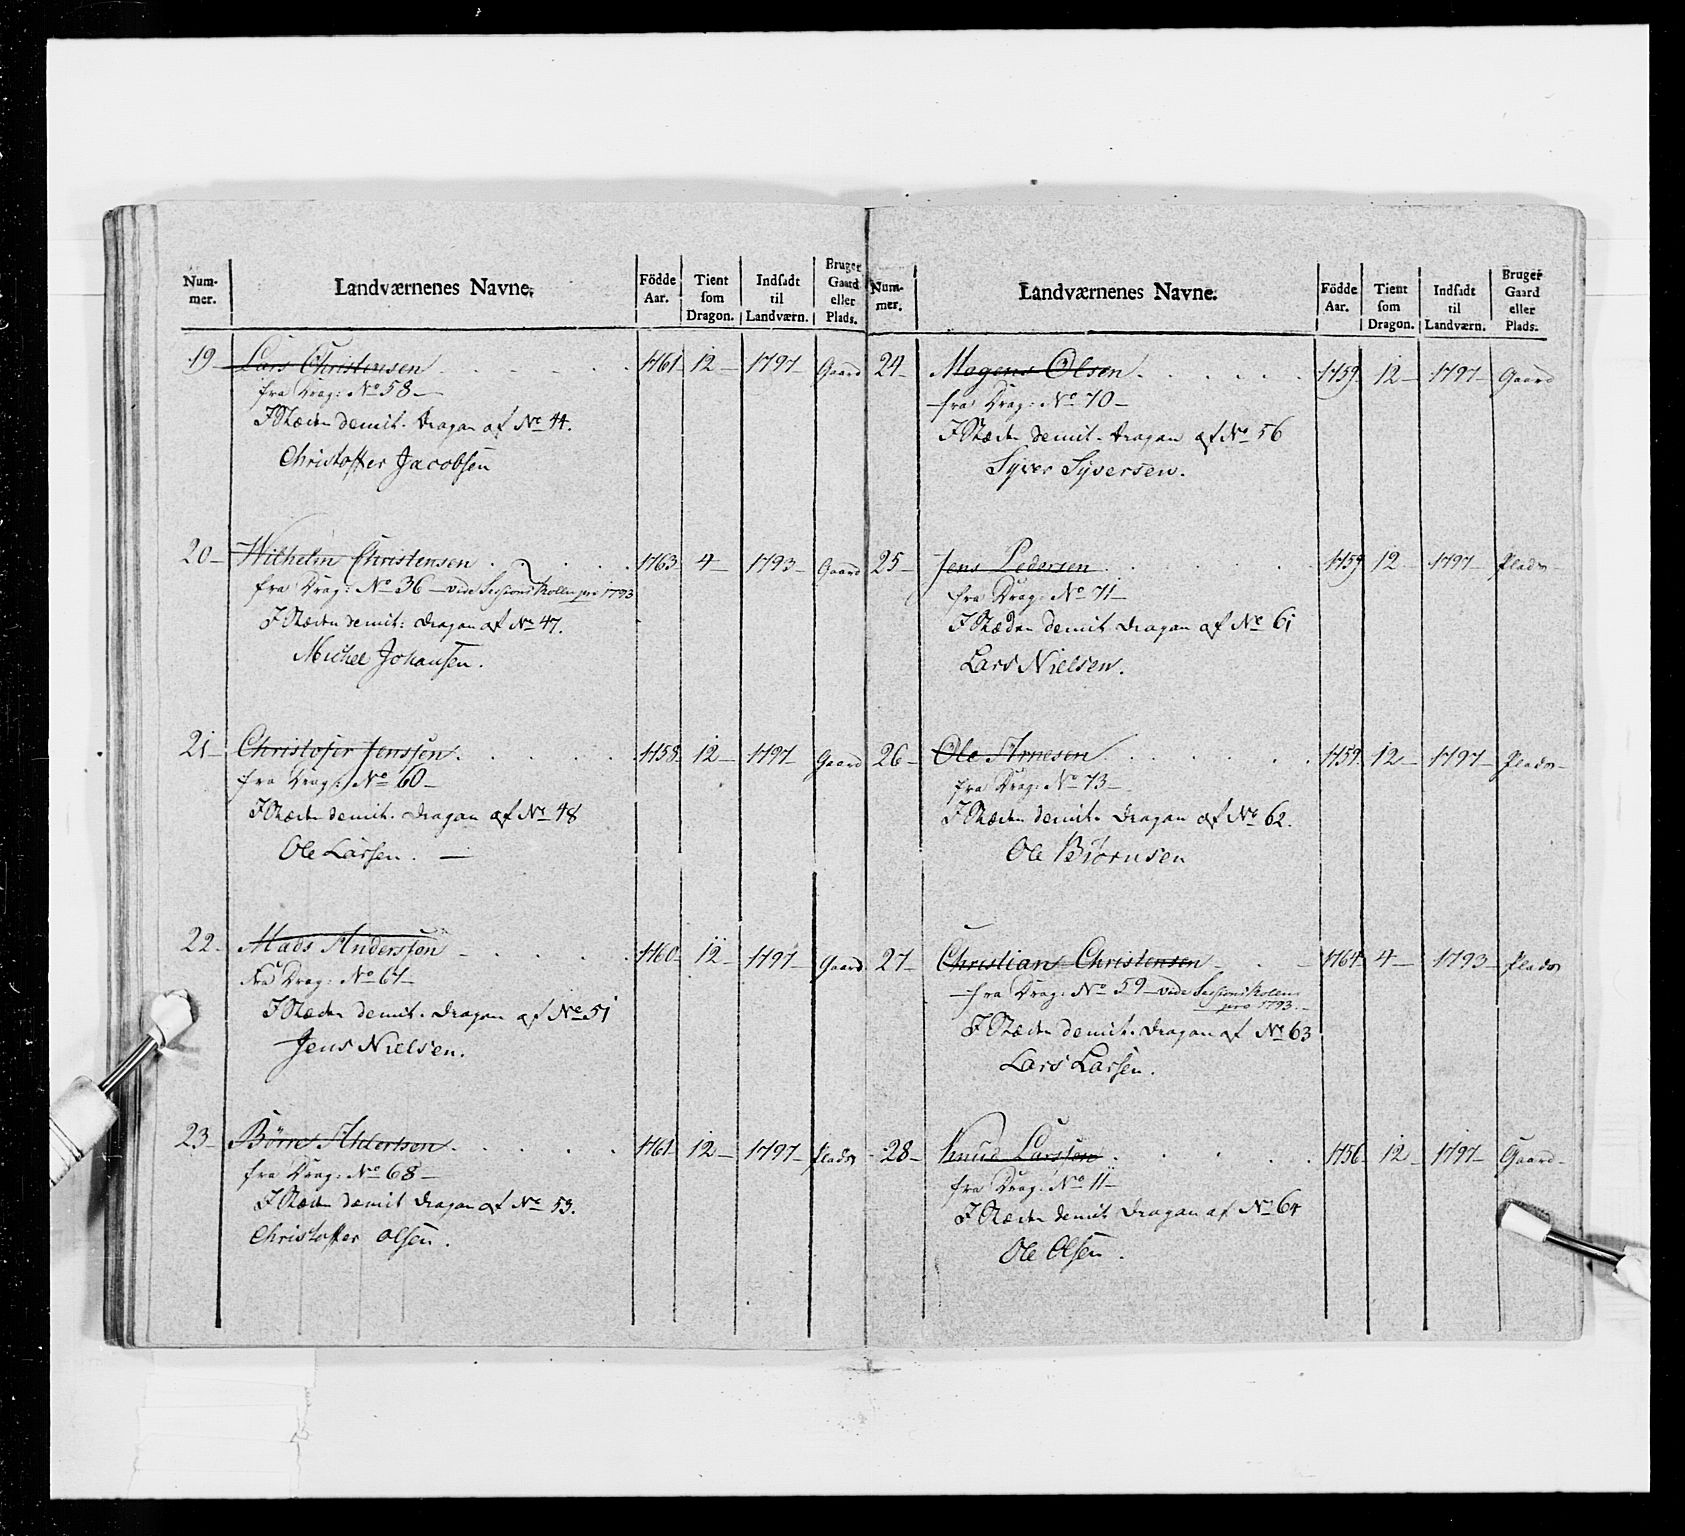 Num-
mer.
Landværnenes Navne.
Födde
Aar.
Tient
som
Dragon.
Indsadt
til
Landværn.
Bruger
Gaard
eller
Plads.
19 Lars Christensen 1761 12 1797 Gaard
fra Drag: No 58
I Stæden demit. Dragon af No 44.
Christoffer Jacobsen
20 Wilhelm Christensen 1763 4 1793 Gaard
fra Drag: No 36 vide Sessions Rollen pro 1793
I Stæden demit: Dragon af No 47.
Michel Johansen.
21 Christofer Jenssen 1758 12 1797 Gaard
fra Drag: No 60
I Stæden demit. Dragon af No 48
Ole Larsen.
22 Mads Anderssen 1760 12 1797 Gaard
fra Drag: No 61
I Stæden demit. Dragon af No 51
Jens Nielsen.
23 Börre 1761 12 1797 Plads
fra Drag: No 68
I Stæden demit Dragon af No 53.
Christoffer Olsen.
Num-
mer.
Landværnenes Navne.
Födde
Aar.
Tient
som
Dragon.
Indsadt
til
Landværn.
Bruger
Gaard
eller
Plads.
24 Mogens Olsen 1759 12 1797 Gaard
fra Drag: No 70
I Stæden demit. Dragon af No 56
Syver Syversen.
25 Jens Pedersen 1759 12 1797 Plads
fra Drag: No 71
I Stæden demit Dragon af No 61
Lars Nielsen.
26 Ole Arnesen 1759 12 1797 Plads
fra Drag: No 73
I Stæden demit. Dragon af No 62.
Ole Biørnsen
27 Christian Christensen 1764 4 1793 Plads
fra Drag: No 59 vide Sessions Rollen
pro 1793.
I Stæden demit. Dragon af No 63
Lars Larsen.
28 Knud Larssen 1756 12 1797 Gaard
fra Drag: No 11
I Stæden demit Dragon af No 64
Ole Olsen.